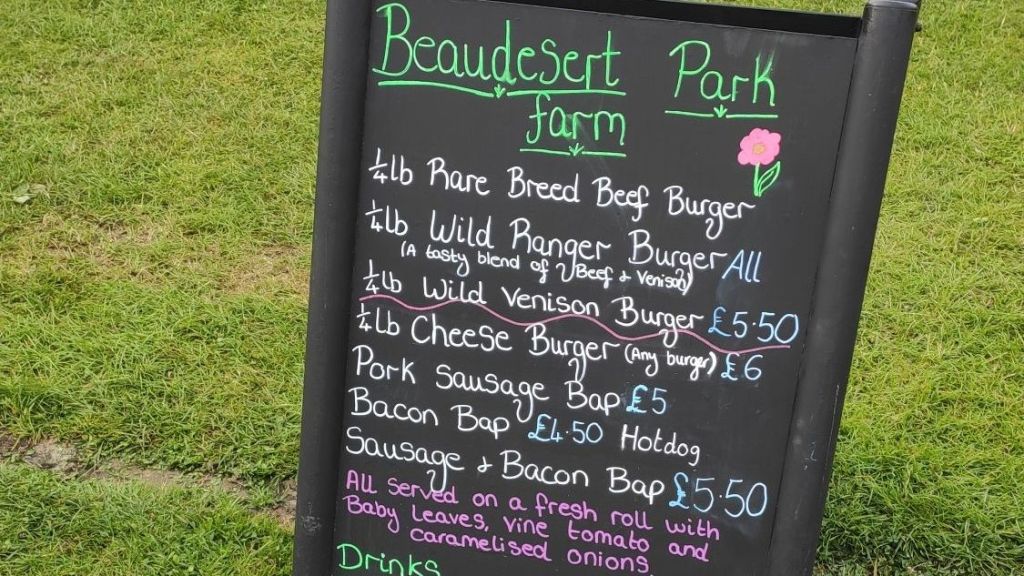 Beaudesert Park
farm
¼lb Rare Breed Beef Burger
¼lb Wild Ranger Burger All
(A tasty blend of Beef + Venison)
¼lb Wild Venison Burger £5.50
¼lb Cheese Burger (Any burger) £6
Pork Sausage Bap £5
Bacon Bap £4.50 Hotdog
Sausage + Bacon Bap £5.50
All served on a fresh roll with
Baby Leaves, vine tomato and
caramelised onions
Drinks